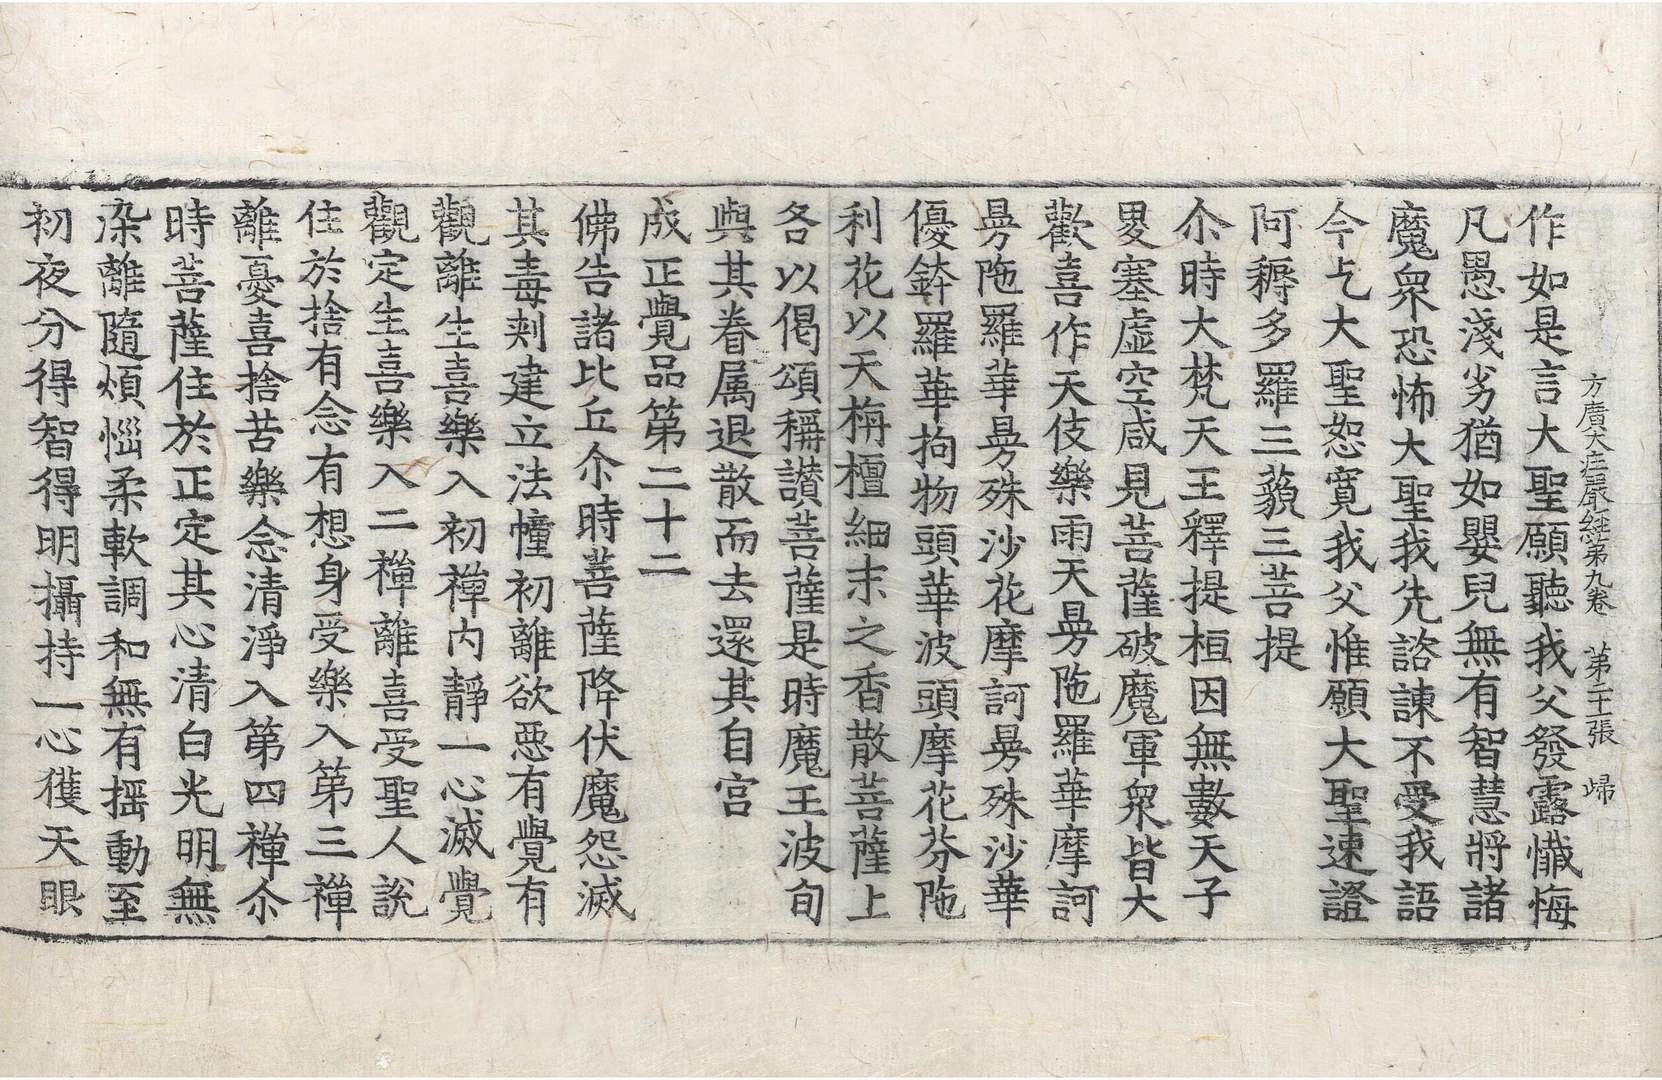 方廣大庄嚴經第九卷 第二十張 歸
作如是言大聖願聽我父發露懺悔
凡愚淺劣猶如嬰兒無有智慧將諸
魔衆恐怖大聖我先諮諫不受我語
今乞大聖恕寬我父惟願大聖速證
阿耨多羅三藐三菩提
尒時大梵天王釋提桓因無數天子
畟塞虛空咸見菩薩破魔軍衆皆大
歡喜作天伎樂雨天曼陁羅華摩訶
曼陁羅華曼殊沙花摩訶曼殊沙華
優鉢羅華拘物頭華波頭摩花芬陁
利花以天栴檀細末之香散菩薩上
各以偈頌稱讃菩薩是時魔王波旬
與其眷属退散而去還其自宮
成正覺品第二十二
佛告諸比丘尒時菩薩降伏魔怨滅
其毒刺建立法幢初離欲惡有覺有
觀離生喜樂入初禪內靜一心滅覺
觀定生喜樂入二禪離喜受聖人說
住於捨有念有想身受樂入第三禪
離憂喜捨苦樂念清淨入第四禪尒
時菩薩住於正定其心清白光明無
染離隨煩惱柔軟調和無有搖動至
初夜分得智得明攝持一心獲天眼